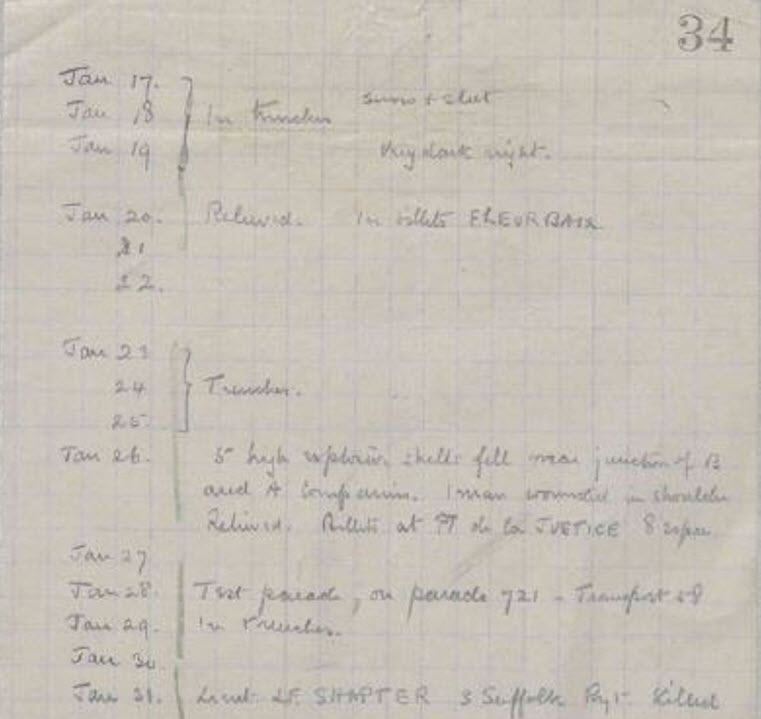 34
Jan 17.
Jan 18 In trenches snow & sleet
Jan 19 Very dark night.
Jan 20. Relieved. In billets FLEURBAIX
21
22.
Jan 23
24 Trenches.
25
Jan 26. 5 high explosive shells fell near junction of B
and A Companies. 1 man wounded in shoulder
Relieved. Billets at de la JUSTICE 8
Jan 27
Jan 28. Test parade, on parade 721 - Transport 58
Jan 29. In trenches.
Jan 30
Jan 31. Lieut. SHAPTER 3 Suffolk Rgt. Killed